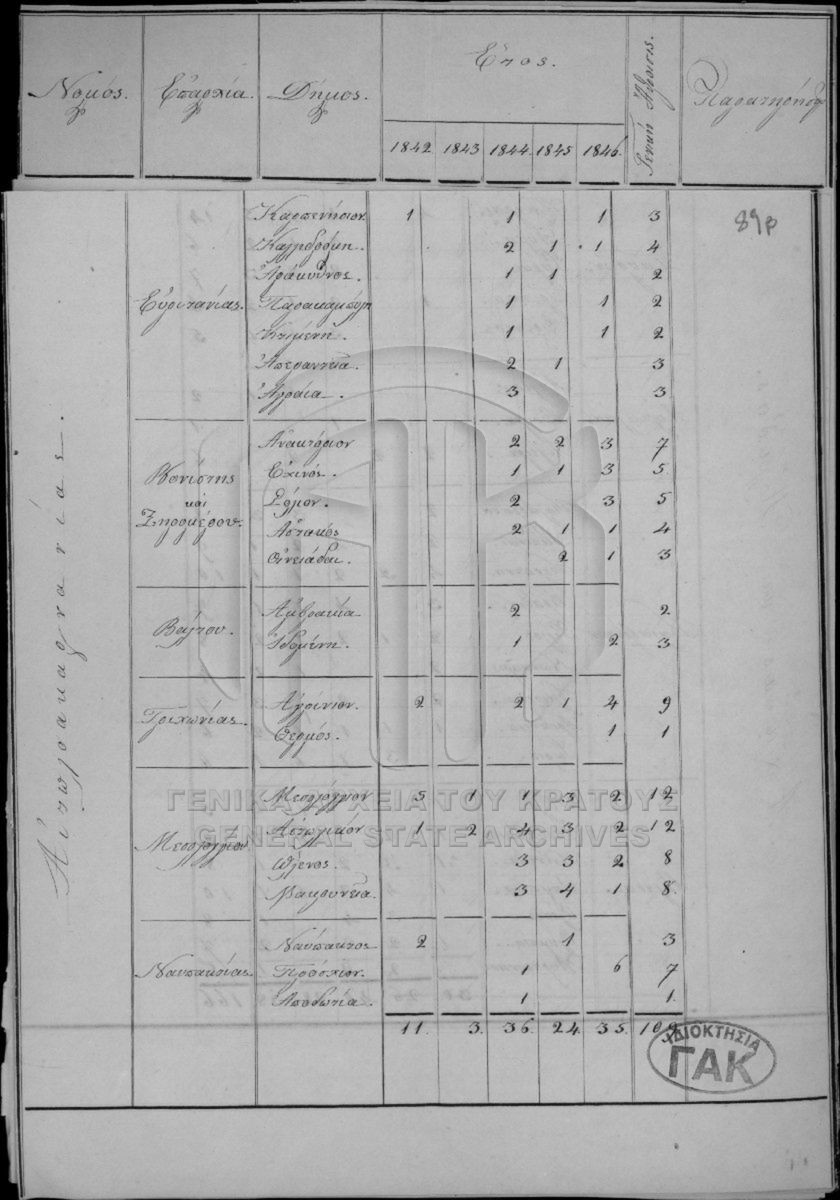 Νομός. Ἐπαρχία. Δήμος. Ἔτος. Γενική Ἄθροισις. Παρατηρήσ
1842. 1843. 1844. 1845 1846.
89β
Αἰτωλοακαρνανίας.
Εὐρυτανίας.
Καρπενήσιον 1 1 1 3
Καλλιδρόμη. 2 1 1 4
Ἀράκυνθος. 1 1 2
Παρακαμπύλη 1 1 2
Κτιμένη. 1 1 2
Ἀπεραντεία. 2 1 3
Ἀγραία. 3 3
Βονίτσης καὶ Ξηρομέρου.
Ἀνακτόριον 2 2 3 7
Ἐχινός. 1 1 3 5.
Σόλιον. 2 3 5
Ἀστακός 2 1 1 4
Οἰνειάδαι. 2 1 3
Βάλτου.
Ἀμβρακία 2 2
Ἰδομένη. 1 2 3
Τριχωνίας.
Ἀγρίνιον. 2 2 1 4 9
Θερμός. 1 1
Μεσολογγίου.
Μεσολόγγιον 5 1 1 3 2 12
Αἰτωλικόν 1 2 4 3 2 12
Ὤλενος. 3 3 2 8
Μακρυνεία. 3 4 1 8.
Ναυπακτίας.
Ναύπακτος 2 1 3
Προόσχιον. 1 6 7
Ἀποδωτία. 1 1.
11. 3. 36. 24. 35. 109
ΓΕΝΙΚΑ ΑΡΧΕΙΑ ΤΟΥ ΚΡΑΤΟΥΣ
GENERAL STATE ARCHIVES
ΙΔΙΟΚΤΗΣΙΑ
ΓΑΚ